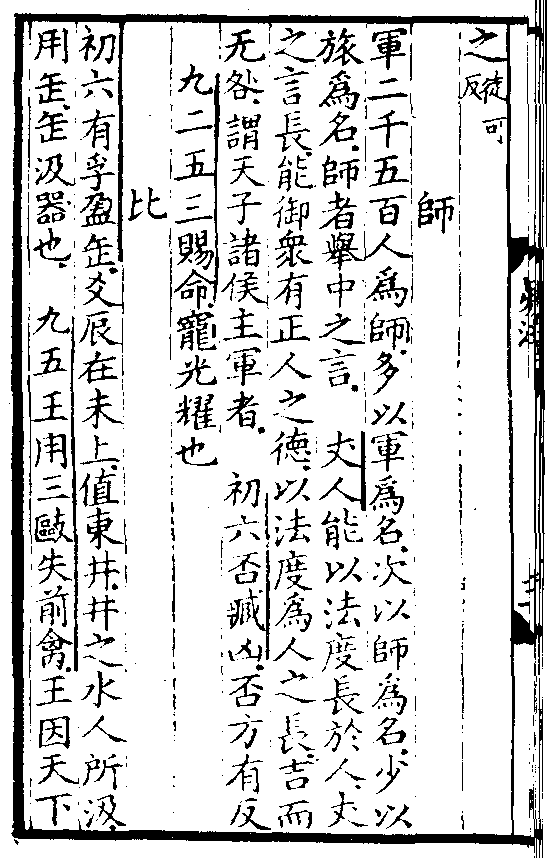 之徒可反
師
軍二千五百人爲師多以軍爲名次以師爲名少以
旅爲名師者舉中之言　丈人能以法度長於人丈
之言長能御衆有正人之德以法度爲人之長吉而
无咎謂天子諸侯主軍者　初六否臧凶否方有反
九二五三賜命寵光耀也
比
初六有孚盈缶爻辰在未上值東井井之水人所汲
用缶缶汲器也　九五王用三敺失前禽王因天下